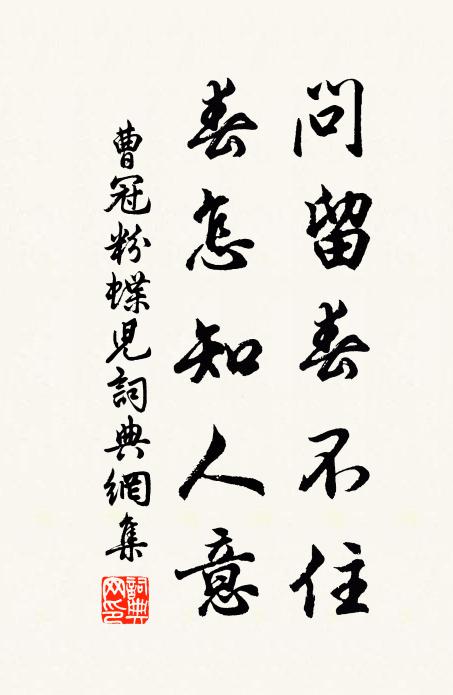 問留春不住
春怎知人意
曹冠粉蝶児詞典網集
詞典網印